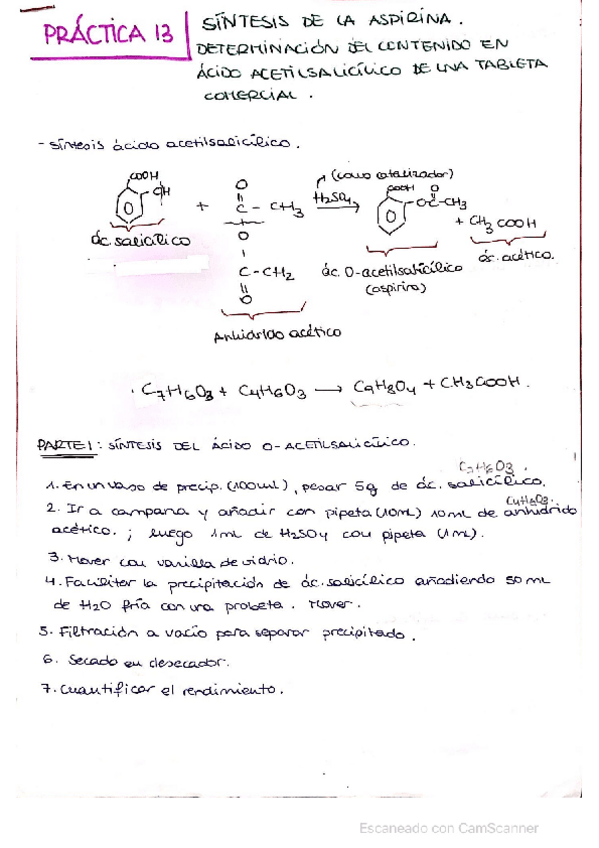 PRÁCTICA 13
SÍNTESIS DE LA ASPIRINA.
DETERMINACIÓN DEL CONTENIDO EN
ÁCIDO ACETILSALICÍLICO DE UNA TABLETA
COMERCIAL.
- Síntesis ácido acetilsalicílico.
(como catalizador)
COOH
OH
O
+
C - CH3
H2SO4
COOH
O
OC-CH3
+ CH3COOH
O
ác. salicílico
C-CH2
O
ác. O-acetilsalicílico
(aspirina)
ác. acético.
Anhídrido acético
C7H6O3 + C4H6O3 → C9H8O4 + CH3COOH.
PARTE 1: SÍNTESIS DEL ÁCIDO O-ACETILSALICÍLICO.
C7H6O3
1. En un vaso de precip. (100ml), pesar 5g de ác. salicílico.
C4H6O3
2. Ir a campana y añadir con pipeta (10mL) 10mL de anhídrido
acético.; luego 1mL de H2SO4 con pipeta (1mL).
3. Mover con varilla de vidrio.
4. Facilitar la precipitación de ác. salicílico añadiendo 50mL
de H2O fría con una probeta. Mover.
5. Filtración a vacío para separar precipitado.
6. Secado en desecador.
7. Cuantificar el rendimiento.
Escaneado con CamScanner